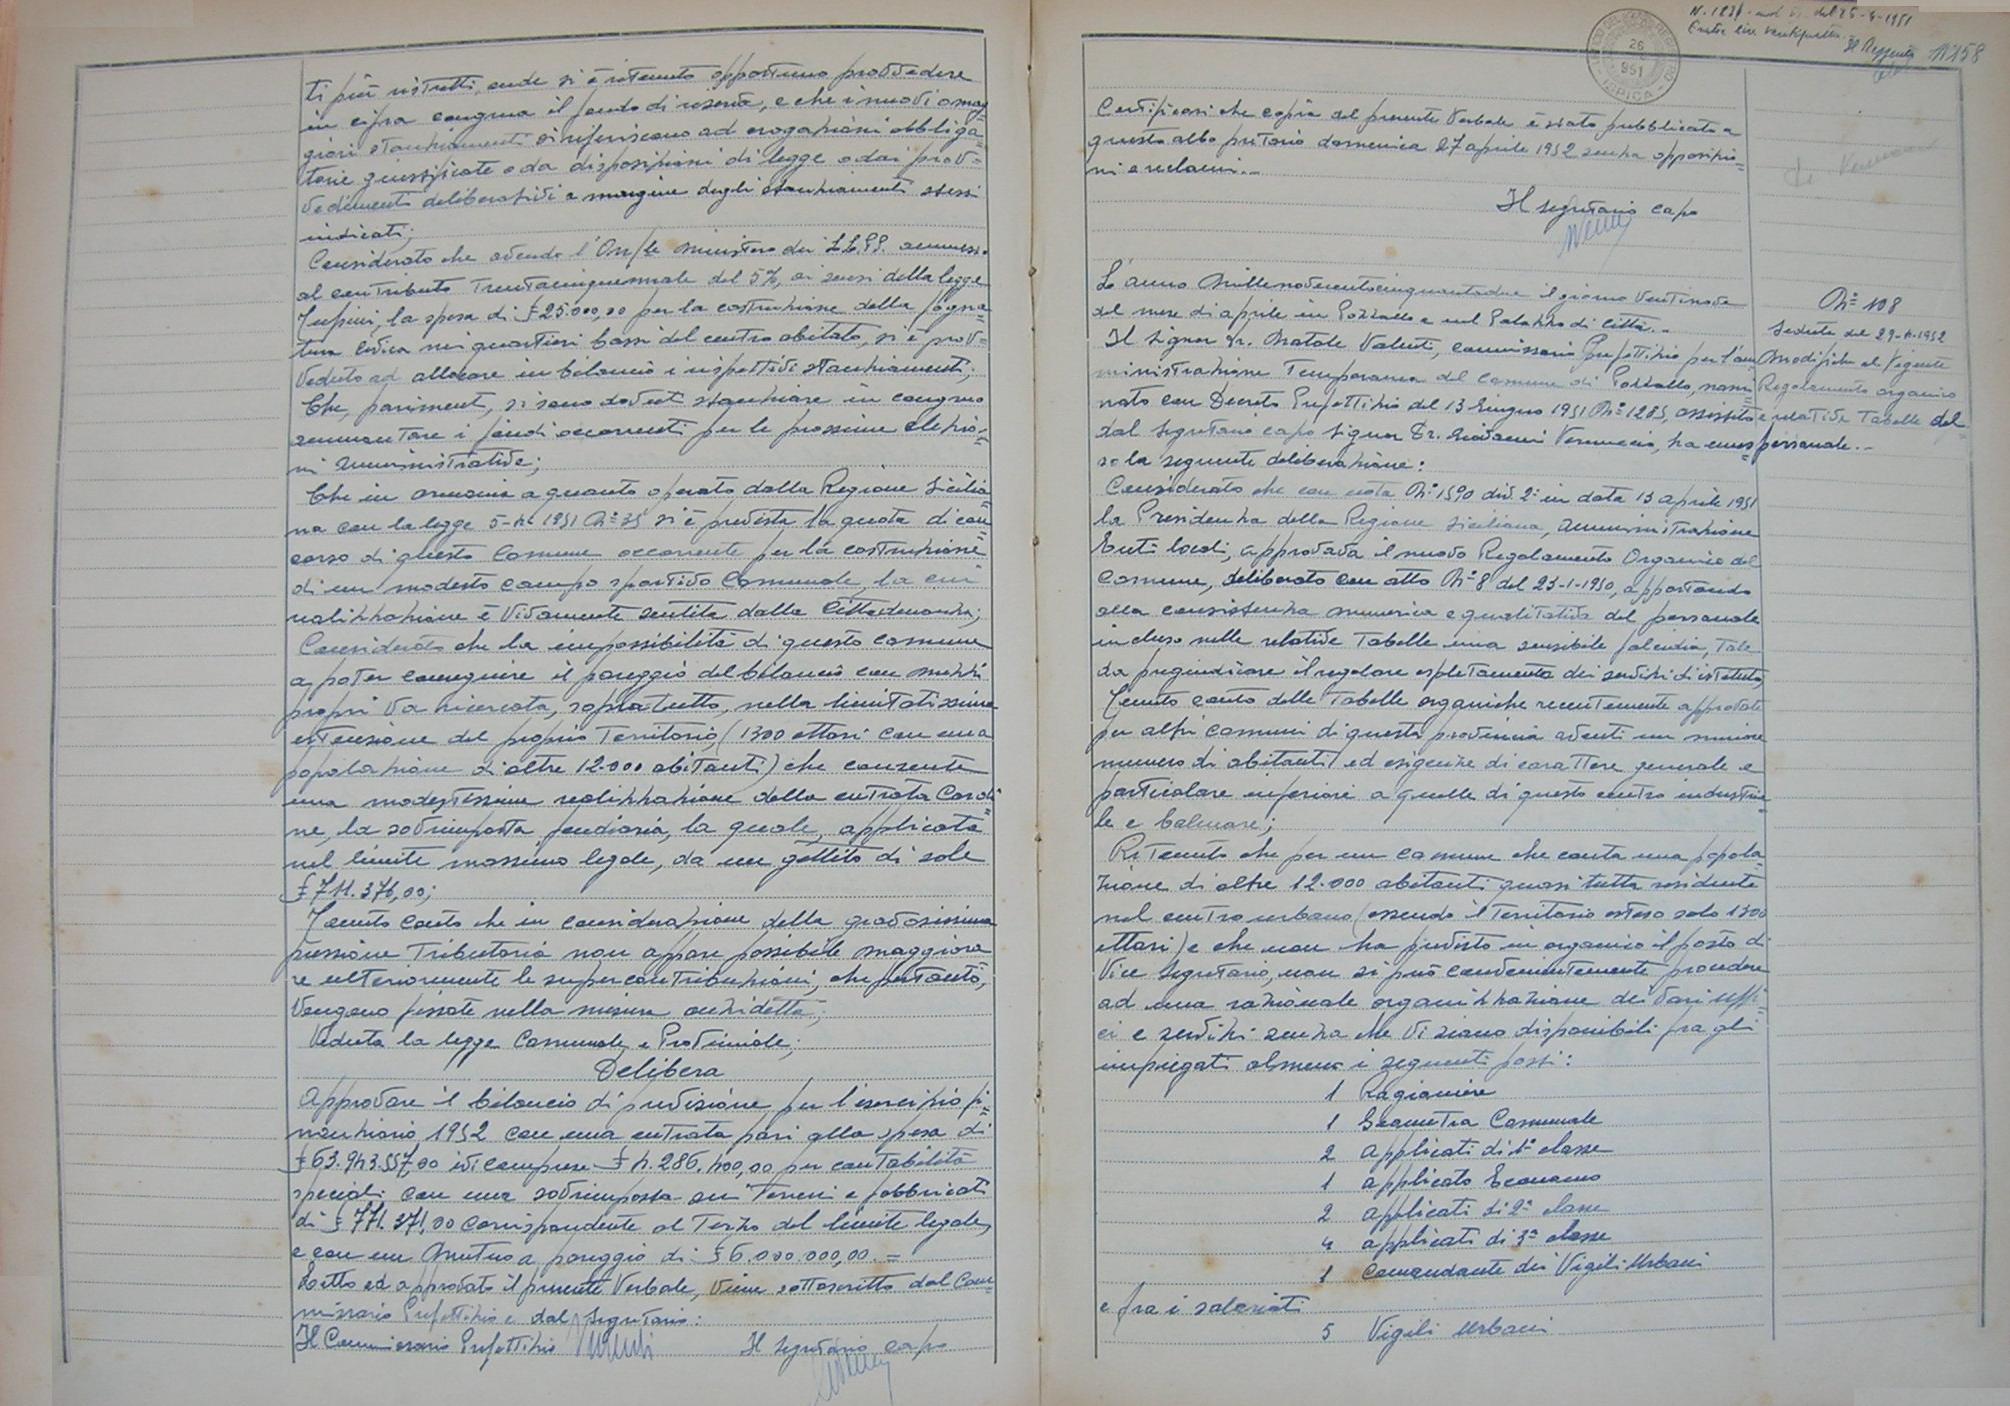 ti più ristretti, onde si è ritenuto opportuno provvedere
in cifra congrua il fondo di riserva, e che i nuovi o mag=
giori stanziamenti si riferiscono ad erogazioni obbliga=
torie giustificate o da disposizioni di legge o dai prov=
vedimenti deliberativi a margine degli stanziamenti stessi
indicati;
Considerato che avendo l'On/le Ministero dei LL.PP. ammesso
al contributo trentacinquennale del 5%, ai sensi della legge
Tupini, la spesa di £ 25.000,00 per la costruzione della fogna=
tura civica nei quartieri bassi del centro abitato, si è prov=
veduto ad allocare in bilancio i rispettivi stanziamenti;
Che, parimenti, si sono dovuti stanziare in congruo
ammontare i fondi occorrenti per le prossime elezio=
ni amministrative;
Che in armonia a quanto operato dalla Regione Sicilia
na con la legge 5-4-1951 N° 35 si è prevista la quota di con
corso di questo Comune occorrente per la costruzione
di un modesto campo sportivo Comunale, la cui
realizzazione è vivamente sentita dalla cittadinanza;
Considerato che la impossibilità di questo comune
a poter conseguire il pareggio del bilancio con mezzi
propri va ricercata, sopratutto, nella limitatissima
estensione del proprio territorio, (1300 ettari con una
popolazione di oltre 12.000 abitanti) che consente
una modestissima realizzazione della entrata cardi
ne, la sovrimposta fondiaria, la quale, applicata
nel limite massimo legale, da un gettito di sole
£ 711.376,00;
Tenuto conto che in considerazione della gravosissima
pressione tributaria non appare possibile maggiora
re ulteriormente le supercontribuzioni, che pertanto,
vengono fissate nella misura anzidetta;
Veduta la legge Comunale e Provinciale;
Delibera
Approvare il bilancio di previsione per l'esercizio fi=
nanziario 1952 con una entrata pari alla spesa di
£ 63.943.557,00 ivi comprese £ 4.286.400,00 per contabilità
speciali, con una sovrimposta sui terreni e fabbricati
di £ 771.371,00 corrispondente al terzo del limite legale,
e con un Mutuo a pareggio di £ 6.000.000,00.=
Letto ed approvato il presente Verbale, viene sottoscritto dal Com=
missario Prefettizio e dal Segretario:
Il Commissario Prefettizio Il segretario capo
26
951
Il Reggente
N°158
Certificasi che copia del presente Verbale è stata pubblicata a
questo albo pretorio domenica 27 aprile 1952 senza opposizio=
ni e reclami.-
Il segretario capo
L'anno Millenovecentocinquantadue il giorno ventinove
del mese di aprile in Pozzallo e nel Palazzo di Città.-
Il Signor Dr. Natale Valenti, commissario Prefettizio per l'am
ministrazione temporanea del Comune di Pozzallo, nomi=
nato con Decreto Prefettizio del 13 Giugno 1951 N° 1285, assistito
dal segretario capo Signor Dr. Giovanni Vernuccio, ha emes=
so la seguente deliberazione:
N° 108
Seduta del 29-4-1952
Modifiche al Vigente
Regolamento organico
e relative Tabelle del
personale.-
Considerato che con nota N° 1590 div. 2ª in data 13 aprile 1951
la Presidenza della Regione Siciliana, Amministrazione
Enti locali, approvava il nuovo Regolamento Organico del
Comune, deliberato con atto N° 8 del 23-1-1950, apportando
alla consistenza numerica e qualitativa del personale
incluso nelle relative tabelle una sensibile falcidia, tale
da pregiudicare il regolare espletamento dei servizi di istituto;
Tenuto conto delle Tabelle organiche recentemente approvate
per altri comuni di questa provincia aventi un minore
numero di abitanti ed esigenze di carattere generale e
particolare inferiori a quelle di questo centro industria
le e balneare;
Ritenuto che per un comune che conta una popola=
zione di oltre 12.000 abitanti quasi tutta residente
nel centro urbano (essendo il territorio esteso solo 1300
ettari) e che non ha previsto in organico il posto di
Vice Segretario, non si può convenientemente procedere
ad una razionale organizzazione dei vari uffi=
ci e servizi senza che vi siano disponibili fra gli
impiegati almeno i seguenti posti:
1 Ragioniere
1 Geometra Comunale
2 Applicati di 1ª classe
1 applicato Economo
2 applicati di 2ª classe
4 applicati di 3ª classe
1 Comandante dei Vigili Urbani
e fra i salariati
5 Vigili Urbani